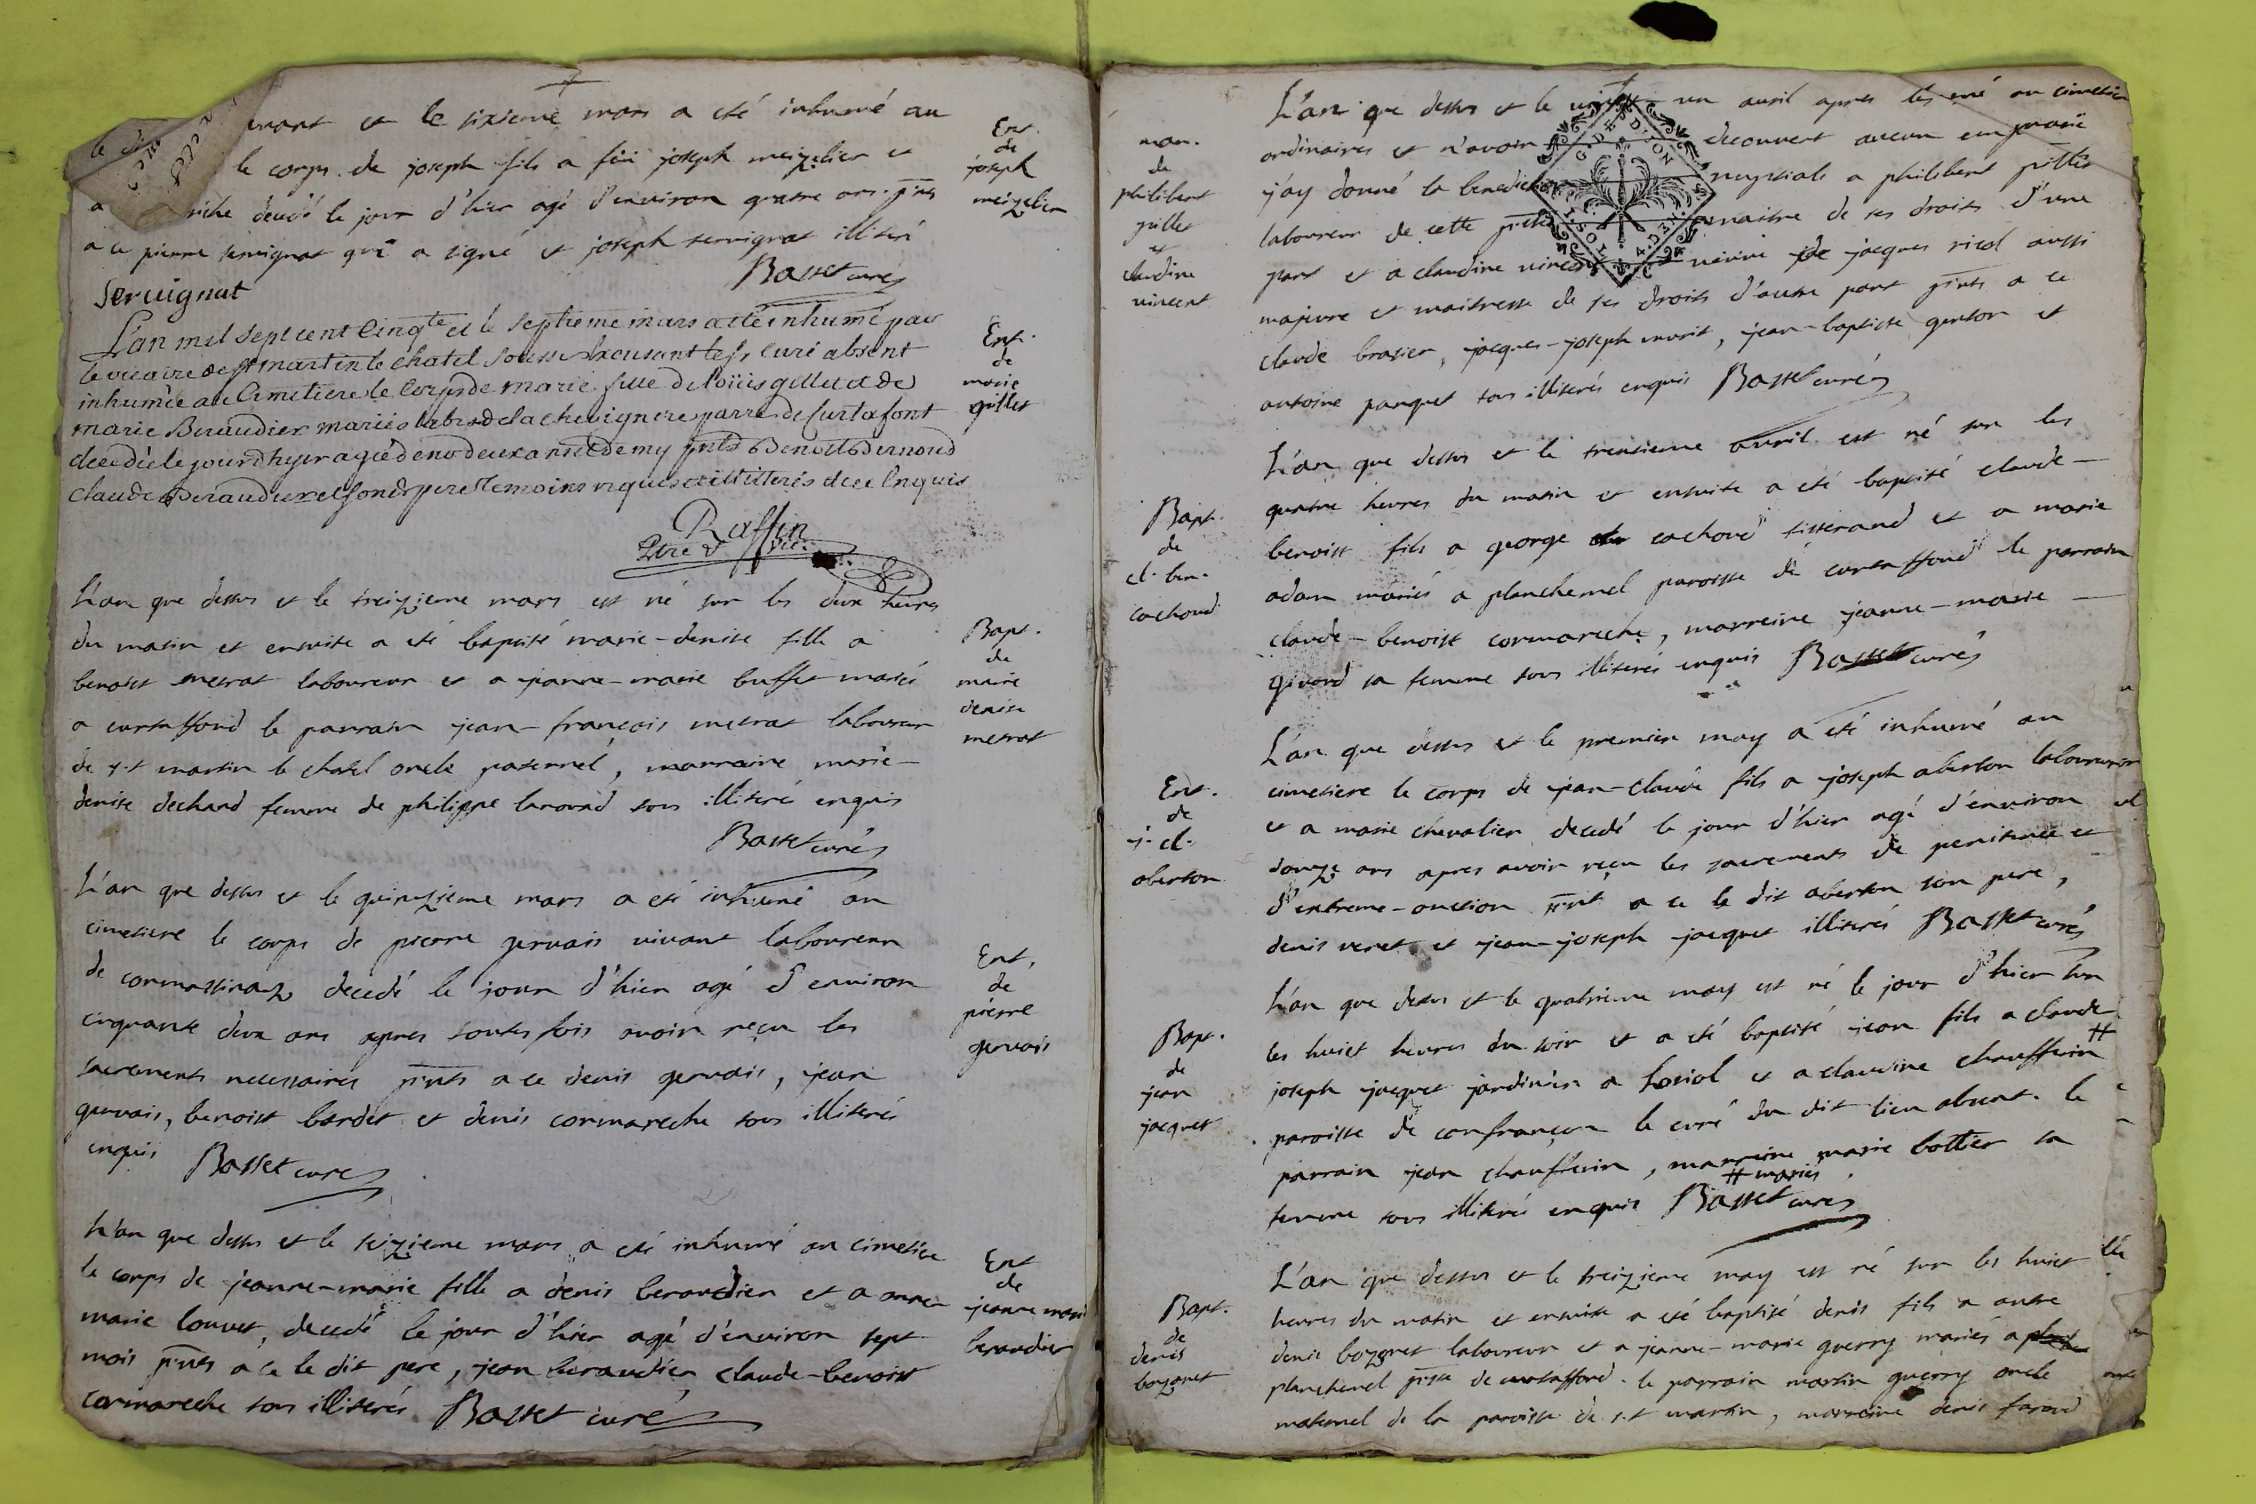 et le sixieme mars a eté inhumé au
le corps de joseph fils a feü joseph meizelier et
decedé le jour d'hier agé d'environ quatre ans. pnts
a ce pierre servignat qui a signé et joseph servignat illiteré
Servignat Basset curé
Ent.
de
joseph
meizelier
L'an mil sept cent Cinqte et le septieme mars a eté inhumé par
le vicaire de st martin le chatel soussé le sr curé absent
inhumée au Cimetiere le Corps de marie fille de loüis gillet et de
marie Beraudier mariés de la chevignere parre de Curtafont
decedée le jour d'hyer agée d'env deux ans et demy pnts Benoit
Claude Beraudier temoins requis et illiterés de ce Enquis
Raffin
Ptre & vic.
Ent.
de
marie
gillet
L'an que dessus et le treizieme mars est né sur les deux heures
du matin et ensuite a eté baptisé marie-denise fille a
benoist metrat laboureur et a jeanne-marie buffet mariés
a curtaffond le parrain jean-françois metrat laboureur
de st martin le chatel oncle paternel, marraine marie-
denise dechand femme de philippe tous illiteré enquis
Basset curé
Bapt.
de
marie
denise
metrat
L'an que dessus et le quinzieme mars a eté inhumé au
cimetiere le corps de pierre gervais vivant laboureur
de cormassinaz decedé le jour d'hier agé d'environ
cinquante deux ans apres toutesfois avoir reçu les
sacrements necessaires pnts a ce denis gervais, jean
gervais, benoist bardet et denis cormareche tous illiterés
enquis Basset curé
Ent.
de
pierre
gervais
L'an que dessus et le seizieme mars a eté inhumé au cimetiere
le corps de jeanne-marie fille a denis beraudier et a anne
marie louvet, decedé le jour d'hier agé d'environ sept
mois pnts a ce le dit pere, jean beraudier claude-benoist
cormareche tous illiterés Basset curé
Ent
de
jeanne marie
beraudier
L'an que dessus et le vingt un avril apres les
ordinaires et n'avoir decouvert aucun
j'ay donné la benediction nuptiale a philibert gillet
laboureur de cette psse maitre de ses droits d'une
part et a claudine vincent veuve de jacques ricol aussi
majeure et maitresse de ses droits d'autre part pnts a ce
claude brasier, jacques-joseph, jean-baptiste et
antoine panquet tous illiterés enquis Basset curé
mar.
de
philibert
gillet
et
claudine
vincent
G. DES D'ION
L'an que dessus et le trentieme avril est né sur les
quatre heures du matin et ensuite a eté baptisé claude-
benoist fils a george cachoud tisserand et a marie
adam mariés a planchemel paroisse de curtaffond le parrain
claude-benoist cormareche, marreine jeanne-marie
givord sa femme tous illiterés enquis Basset curé
Bapt.
de
cl. ben.
cachoud
L'an que dessus et le premier may a eté inhumé au
cimetiere le corps de jean-claude fils a joseph aberton laboureur
et a marie chevalier decedé le jour d'hier agé d'environ
douze ans apres avoir reçu les sacrements de penitence et
d'extreme-onction pnt a ce le dit aberton son pere,
denis veret et jean-joseph jacquet illiterés Basset curé
Ent.
de
j. cl.
aberton
L'an que dessus et le quatrieme may est né le jour d'hier sur
les huict heures du soir et a eté baptisé jean fils a claude
joseph jacquet jardinier a losiol et a claudine chauffurin #
paroisse de confrançon le curé du dit lieu absent. le
parrain jean chauffurin, marreine marie bottier sa
# mariés
femme tous illiterés enquis Basset curé
Bapt.
de
jean
jacquet
L'an que dessus et le treizieme may est né sur les huict
heures du matin et ensuite a eté baptisé denis fils a autre
denis bozonet laboureur et a jeanne-marie guerry mariés a
planchemel psse de curtaffond. le parrain martin guerry oncle
maternel de la paroisse de st martin, marreine denise farond
Bapt.
de
denis
bozonet